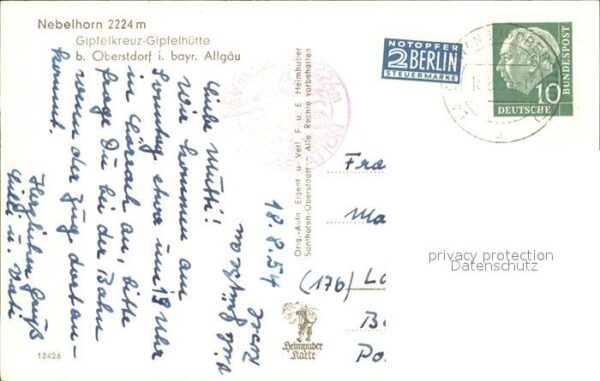 Nebelhorn 2224 m
Gipfelkreuz-Gipfelhütte
b. Oberstdorf i. bayr. Allgäu
18. 8. 54
Liebe Mutti!
Wir kommen am
Sonntag etwa um 19 Uhr
in Lörrach an, bitte
frage Du bei der Bahn
wenn der Zug dort an-
kommt.
Herzlichen Gruß
u. Vati
Orig.-Aufn. Eigent. u. Verl. F. u. E. Heimhuber
Sonthofen-Oberstdorf Alle Rechte vorbehalten
Heimhuber
Karte
13426
NOTOPFER
2 BERLIN
STEUERMARKE
10
DEUTSCHE
BUNDESPOST
Fra
Ma
(17b) Lö
Po
privacy protection
Datenschutz